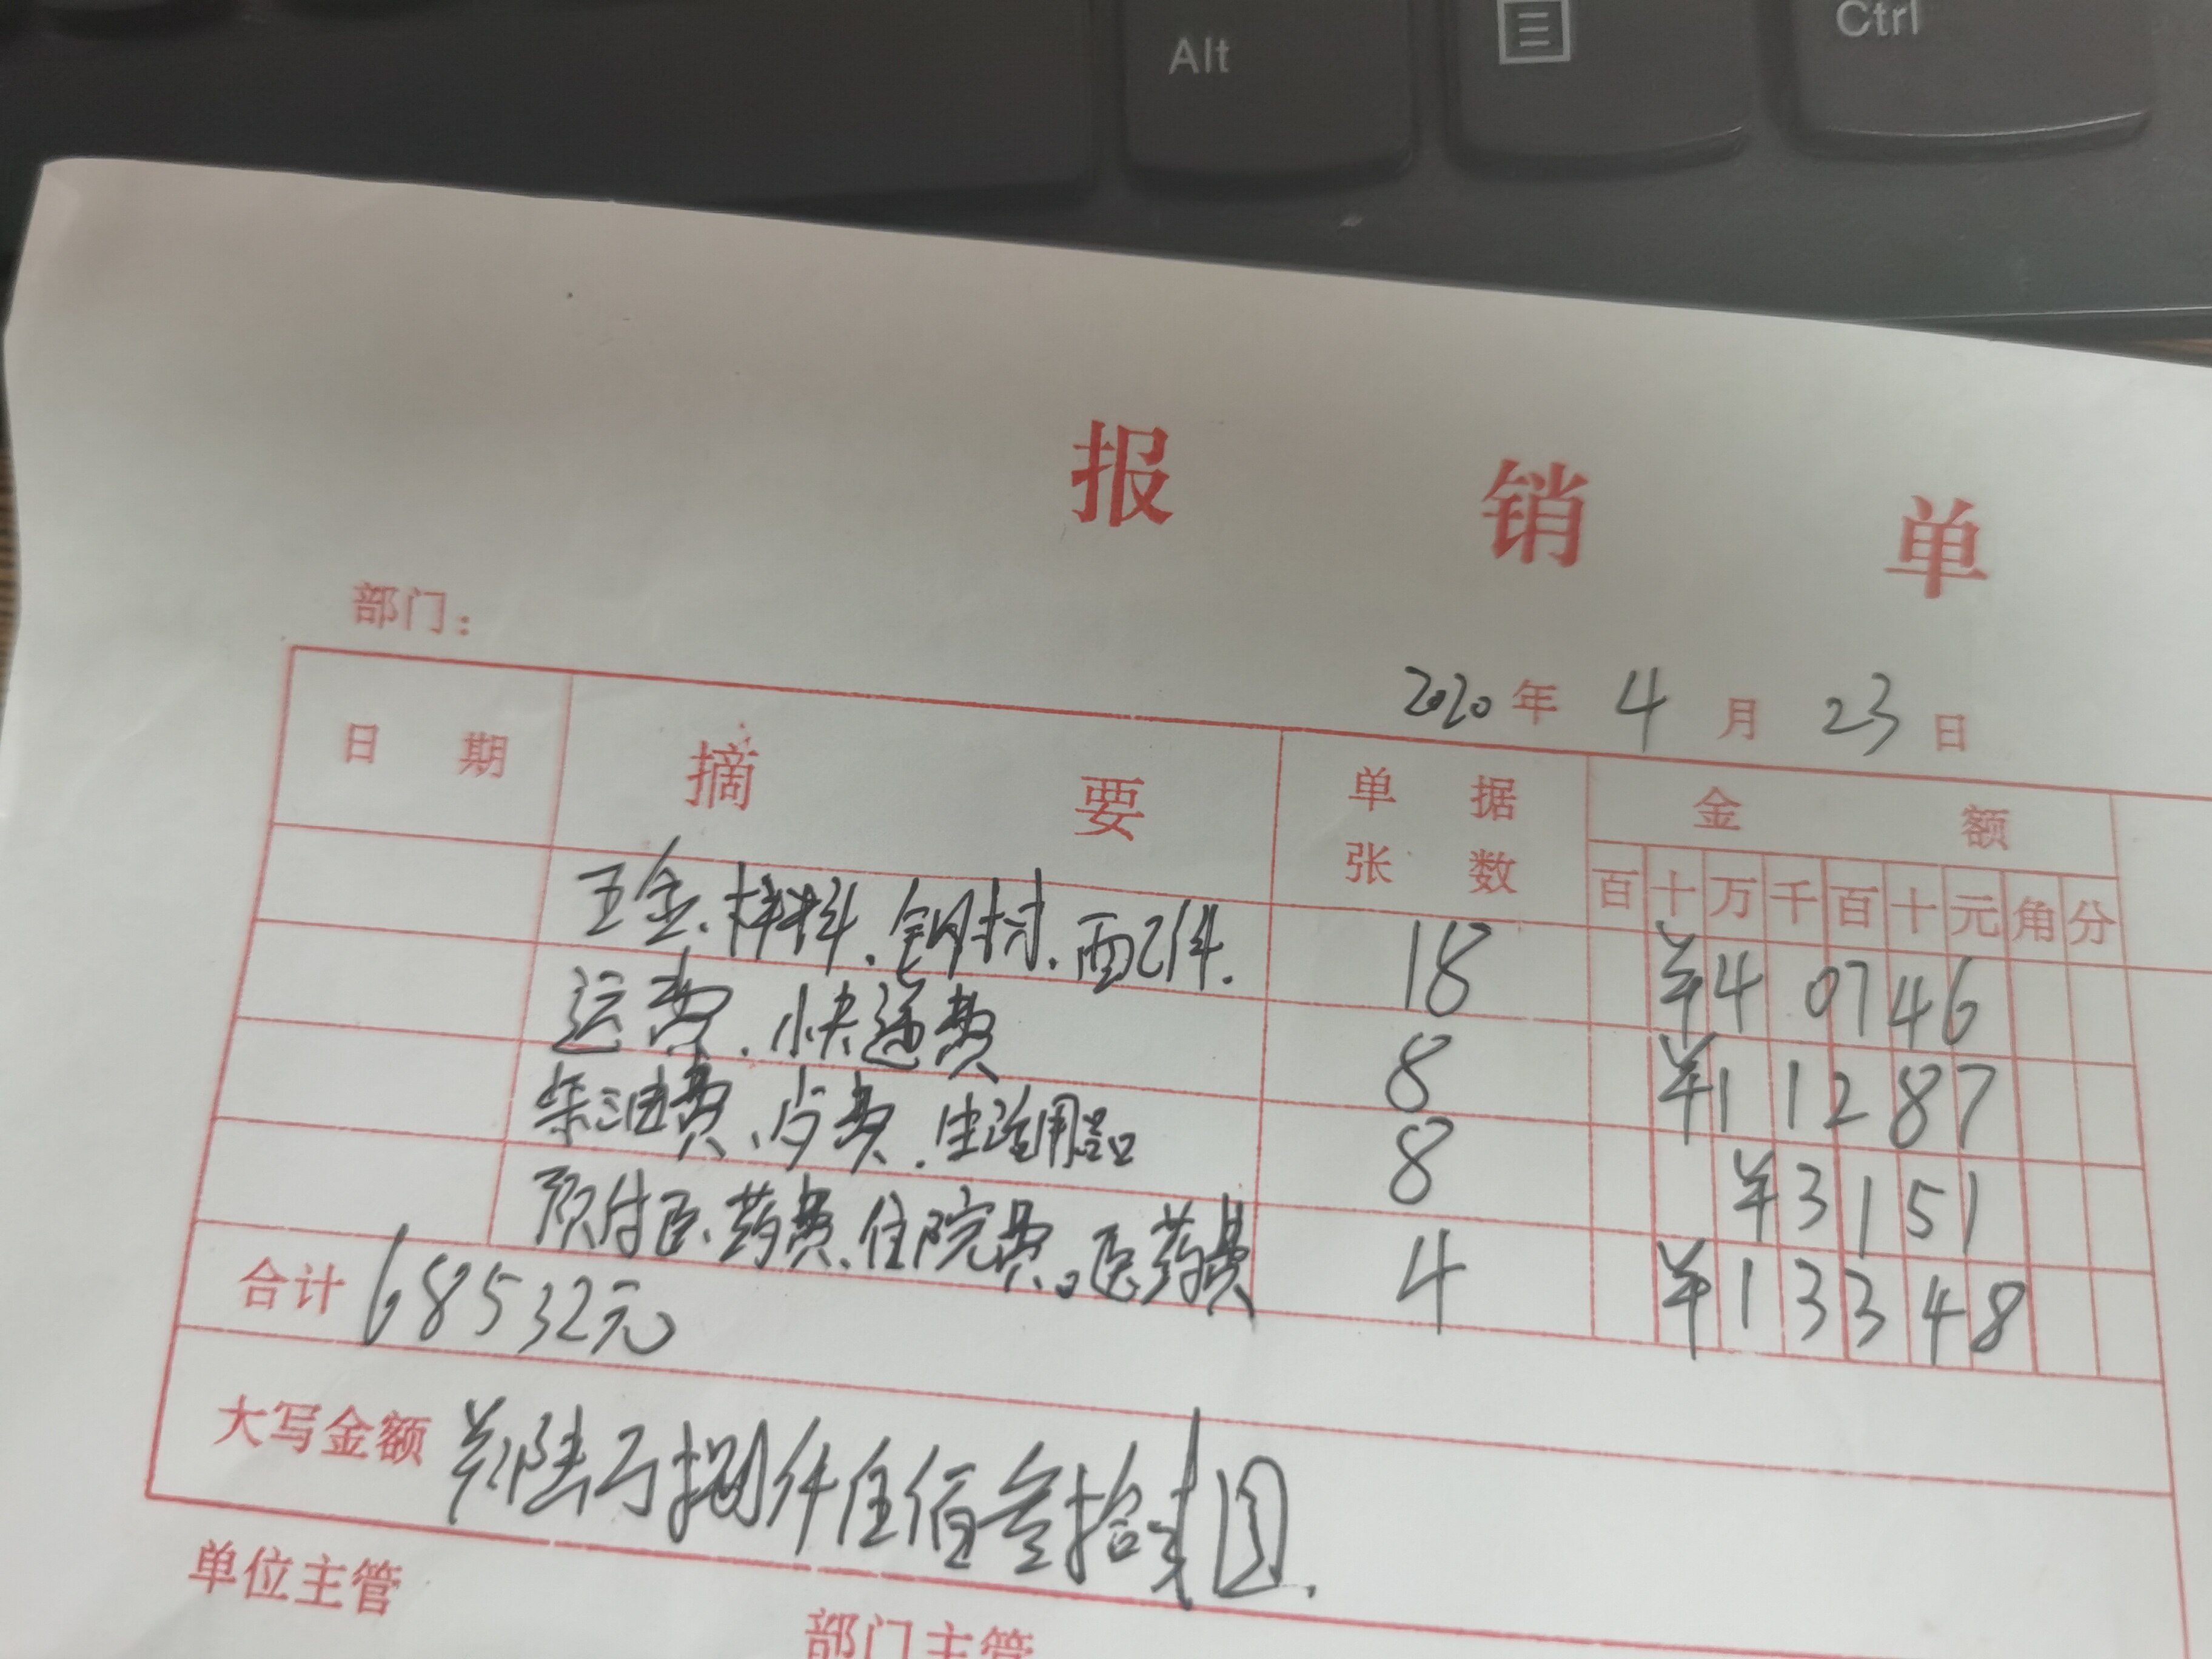 Alt Ctrl
报销单
部门：
2020年4月23日
日期 摘要 单据张数 金额
百 十 万 千 百 十 元 角 分
五金、材料、钢材、配件. 18 ¥40746
运费、快递费 8 ¥11287
柴油费、电费、生活用品 8 ¥3151
预付医药费、住院费。医药费 4 ¥13348
合计 68532元
大写金额 陆万捌仟伍佰叁拾贰圆.
单位主管
部门主管